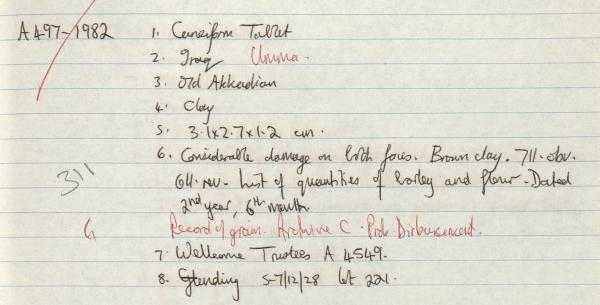 A497-1982 1. Cuneiform Tablet
2. Iraq Umma.
3. Old Akkadian
4. Clay
5. 3.1x2.7x1.2 cm.
6. Considerable damage on both faces. Brown clay. 7ll. obv.
311 6ll. rev. List of quantities of barley and flour. Dated
2nd year, 6th month
G Record of grain. Archive C. Prob. Disbursement.
7. Wellcome Trustees A 4549.
8. Stending 5-7/12/28 lot 221.